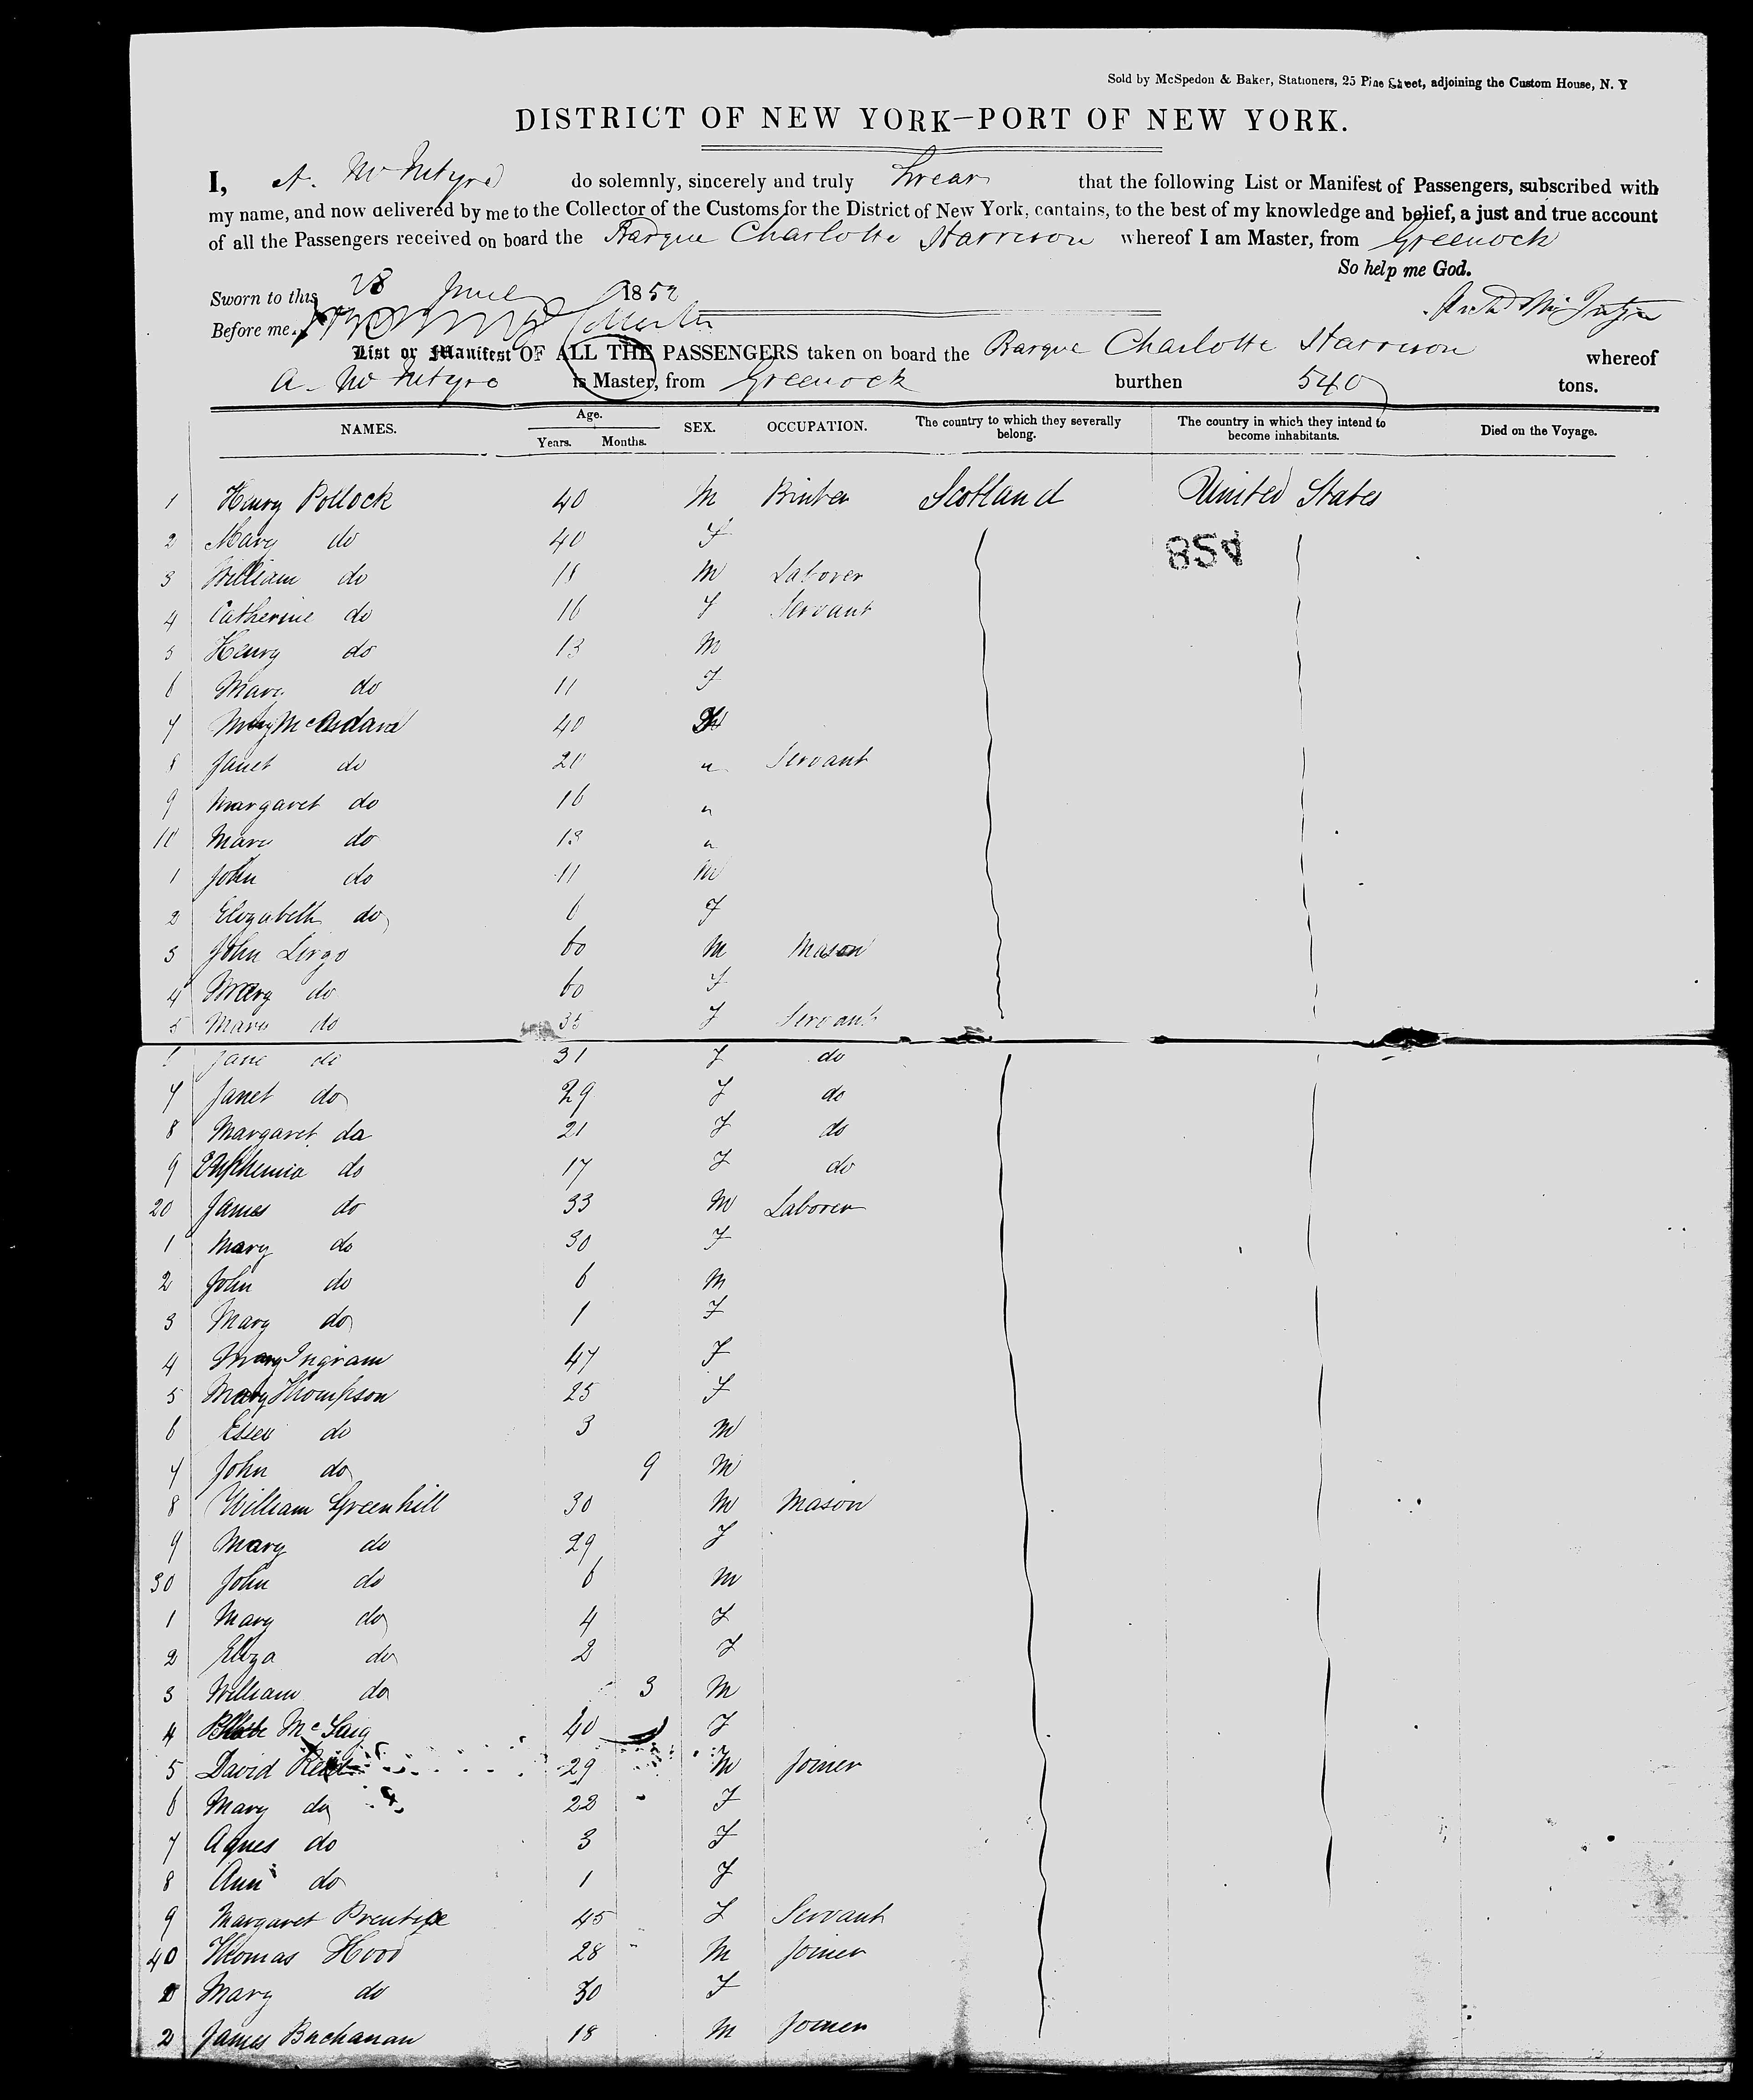 Sold by McSpedon & Baker, Stationers, 25 Pine Street, adjoining the Custom House, N. Y
DISTRICT OF NEW YORK—PORT OF NEW YORK.
I, A. McIntyre do solemnly, sincerely and truly Swear that the following List or Manifest of Passengers, subscribed with
my name, and now delivered by me to the Collector of the Customs for the District of New York, contains, to the best of my knowledge and belief, a just and true account
of all the Passengers received on board the Barque Charlotte Harrison whereof I am Master, from Greenock
So help me God.
Sworn to this 28 June 1852
Before me Archd McIntyre
List or Manifest OF ALL THE PASSENGERS taken on board the Barque Charlotte Harrison whereof
A. McIntyre is Master, from Greenock burthen 540 tons.
NAMES. Age. Years. Months. SEX. OCCUPATION. The country to which they severally belong. The country in which they intend to become inhabitants. Died on the Voyage.
1 Henry Pollock 40 M Printer Scotland United States
2 Mary do 40 F 854
3 William do 18 M Laborer
4 Catherine do 16 F Servant
5 Henry do 13 M
6 Mary do 11 F
7 Mary 40
8 Janet do 21 " Servant
9 Margaret do 16 "
10 Mary do 13 "
1 John do 11 M
2 Elizabeth do 6 F
3 John 60 M Mason
4 Mary do 60 F
5 Mary do 35 F Servant
6 Jane do 31 F do
7 Janet do 29 F do
8 Margaret do 21 F do
9 Euphemia do 17 F do
20 James do 33 M Laborer
1 Mary do 30 F
2 John do 6 M
3 Mary do 1 F
4 Mary Ingram 47 F
5 Mary Thompson 25 F
6 do 3 M
7 John do 9 M
8 William Greenhill 30 M Mason
9 Mary do 29 F
30 John do 6 M
1 Mary do 4 F
2 Eliza do 2 F
3 William do 3 M
4 40 F
5 David Reid 29 M Joiner
6 Mary do 22 F
7 Agnes do 3 F
8 Ann do 1 F
9 Margaret Prentice 45 F Servant
40 Thomas Hood 28 M Joiner
1 Mary do 30 F
2 James Buchanan 18 M Joiner